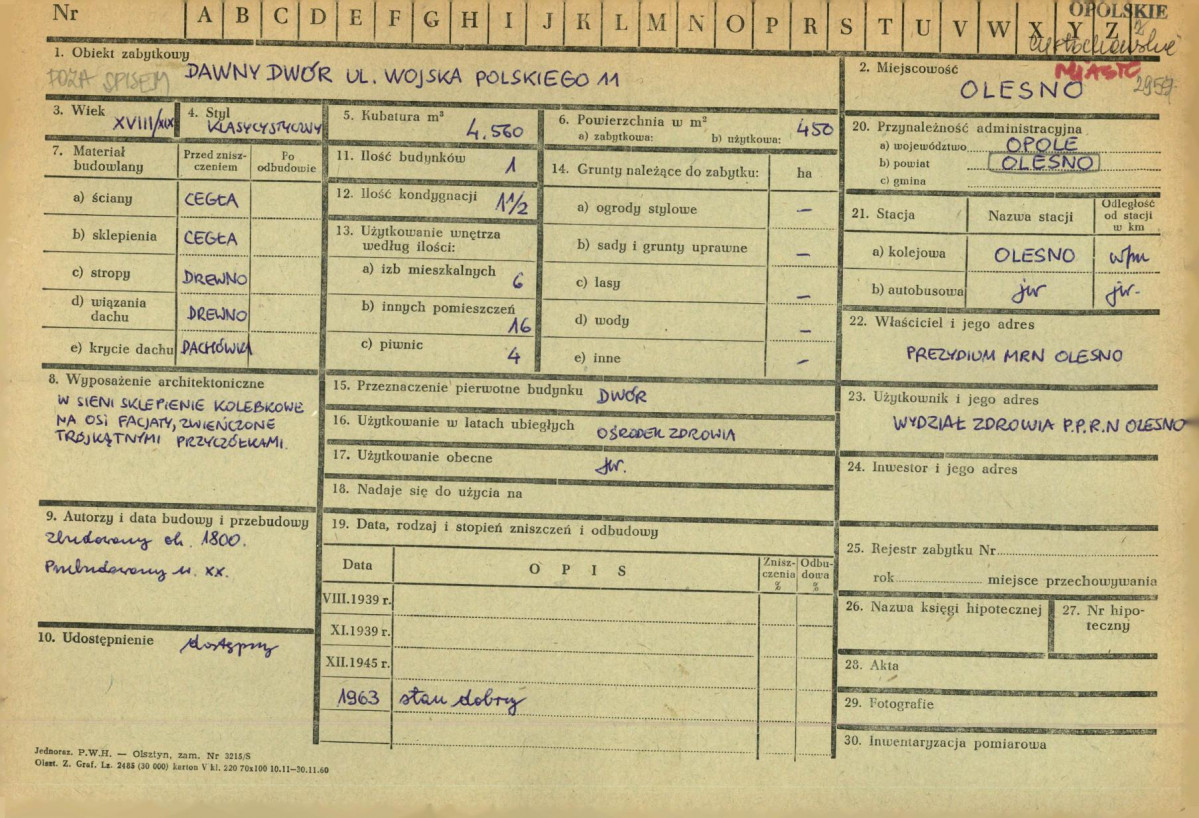 Nr A B C D E F G H I J K L M N O P R S T U V W X Y Z
OPOLSKIE
częstochowskie
1. Obiekt zabytkowy
POZA SPISEM
DAWNY DWÓR UL. WOJSKA POLSKIEGO 11
2. Miejscowość
MIASTO
OLESNO
3. Wiek XVIII/XIX
4. Styl KLASYCYSTYCZNY
5. Kubatura m³ 4.560
6. Powierzchnia w m² 450
a) zabytkowa: b) użytkowa:
7. Materiał budowlany
Przed znisz-
czeniem
Po
odbudowie
a) ściany CEGŁA
b) sklepienia CEGŁA
c) stropy DREWNO
d) wiązania
dachu DREWNO
e) krycie dachu DACHÓWKA
8. Wyposażenie architektoniczne
W SIENI SKLEPIENIE KOLEBKOWE
NA OSI FACJATY, ZWIEŃCZONE
TRÓJKĄTNYMI PRZYCZÓŁKAMI.
9. Autorzy i data budowy i przebudowy
zbudowany ok. 1800.
Przebudowany w. XX.
10. Udostępnienie dostępny
11. Ilość budynków 1
12. Ilość kondygnacji 1 1/2
13. Użytkowanie wnętrza
według ilości:
a) izb mieszkalnych 6
b) innych pomieszczeń 16
c) piwnic 4
14. Grunty należące do zabytku: ha
a) ogrody stylowe –
b) sady i grunty uprawne –
c) lasy –
d) wody –
e) inne –
15. Przeznaczenie pierwotne budynku DWÓR
16. Użytkowanie w latach ubiegłych OŚRODEK ZDROWIA
17. Użytkowanie obecne jw.
18. Nadaje się do użycia na
19. Data, rodzaj i stopień zniszczeń i odbudowy
Data
OPIS
Znisz-
czenia
%
Odbu-
dowa
%
VIII.1939 r.
XI.1939 r.
XII.1945 r.
1963 stan dobry
20. Przynależność administracyjna
a) województwo OPOLE
b) powiat OLESNO
c) gmina
21. Stacja
Nazwa stacji
Odległość
od stacji
w km
a) kolejowa OLESNO w/m
b) autobusowa jw jw.
22. Właściciel i jego adres
PREZYDIUM MRN OLESNO
23. Użytkownik i jego adres
WYDZIAŁ ZDROWIA P.P.R.N OLESNO
24. Inwestor i jego adres
25. Rejestr zabytku Nr
rok miejsce przechowywania
26. Nazwa księgi hipotecznej
27. Nr hipo-
teczny
28. Akta
29. Fotografie
30. Inwentaryzacja pomiarowa
Jednoraz. P.W.H. — Olsztyn, zam. Nr 3215/S
Olszt. Z. Graf. Lz. 2485 (30 000) karton V kl. 220 70x100 10.11—30.11.60